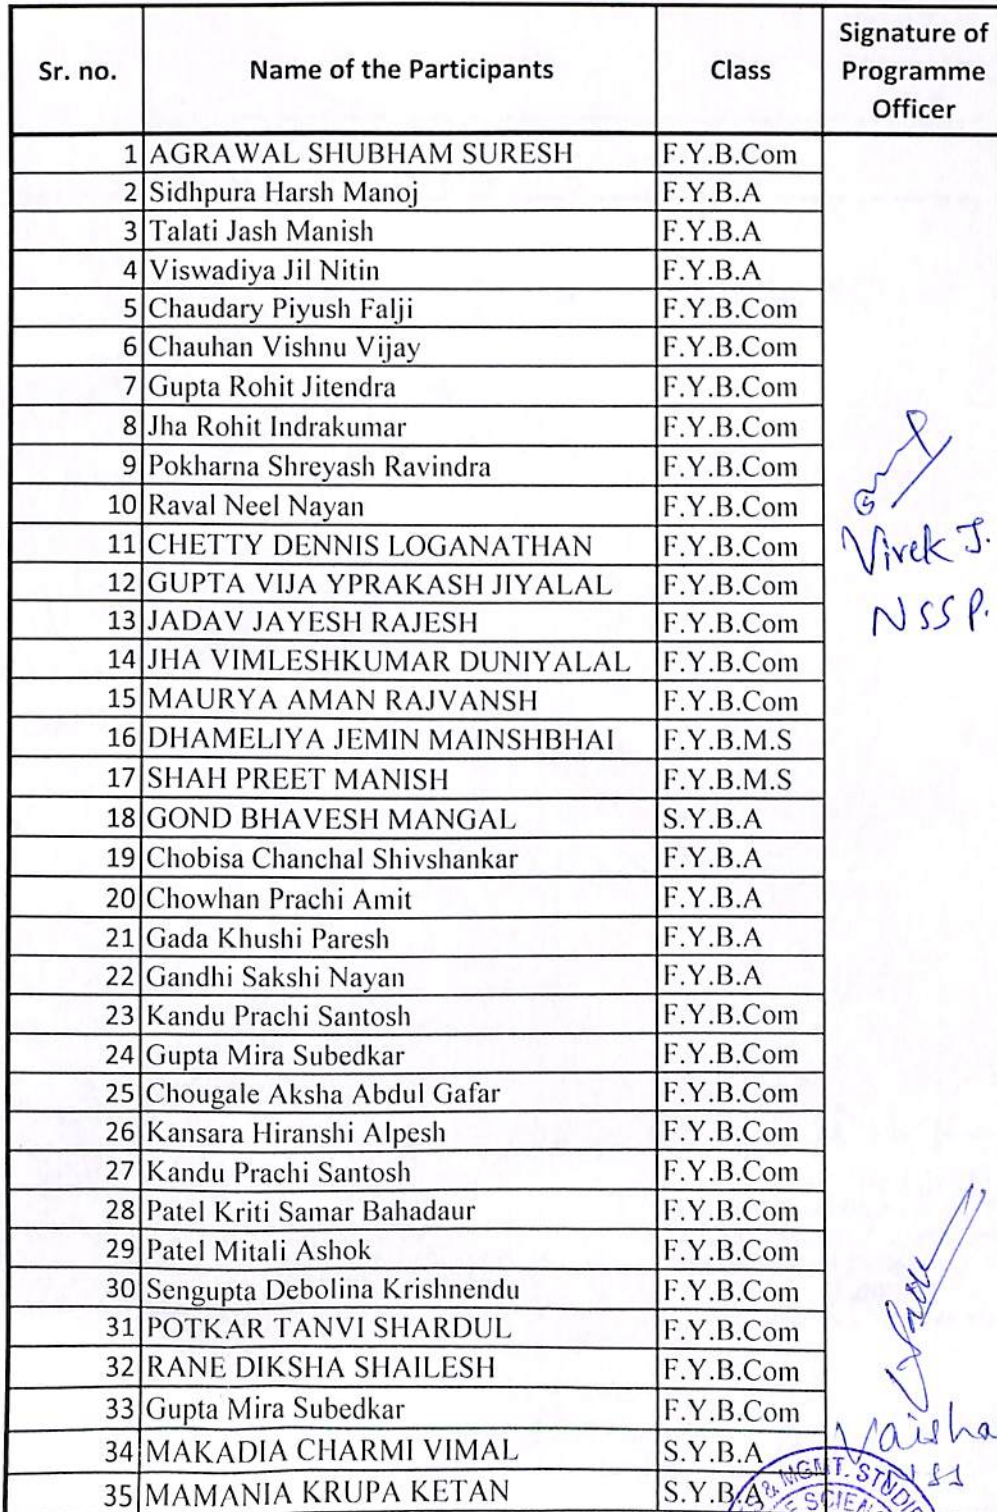 Sr. no. Name of the Participants Class Signature of Programme Officer
1 AGRAWAL SHUBHAM SURESH F.Y.B.Com
2 Sidhpura Harsh Manoj F.Y.B.A
3 Talati Jash Manish F.Y.B.A
4 Viswadiya Jil Nitin F.Y.B.A
5 Chaudary Piyush Falji F.Y.B.Com
6 Chauhan Vishnu Vijay F.Y.B.Com
7 Gupta Rohit Jitendra F.Y.B.Com
8 Jha Rohit Indrakumar F.Y.B.Com
9 Pokharna Shreyash Ravindra F.Y.B.Com
10 Raval Neel Nayan F.Y.B.Com
11 CHETTY DENNIS LOGANATHAN F.Y.B.Com
Vivek J.
12 GUPTA VIJA YPRAKASH JIYALAL F.Y.B.Com
13 JADAV JAYESH RAJESH F.Y.B.Com
NSS P.
14 JHA VIMLESHKUMAR DUNIYALAL F.Y.B.Com
15 MAURYA AMAN RAJVANSH F.Y.B.Com
16 DHAMELIYA JEMIN MAINSHBHAI F.Y.B.M.S
17 SHAH PREET MANISH F.Y.B.M.S
18 GOND BHAVESH MANGAL S.Y.B.A
19 Chobisa Chanchal Shivshankar F.Y.B.A
20 Chowhan Prachi Amit F.Y.B.A
21 Gada Khushi Paresh F.Y.B.A
22 Gandhi Sakshi Nayan F.Y.B.A
23 Kandu Prachi Santosh F.Y.B.Com
24 Gupta Mira Subedkar F.Y.B.Com
25 Chougale Aksha Abdul Gafar F.Y.B.Com
26 Kansara Hiranshi Alpesh F.Y.B.Com
27 Kandu Prachi Santosh F.Y.B.Com
28 Patel Kriti Samar Bahadaur F.Y.B.Com
29 Patel Mitali Ashok F.Y.B.Com
30 Sengupta Debolina Krishnendu F.Y.B.Com
31 POTKAR TANVI SHARDUL F.Y.B.Com
32 RANE DIKSHA SHAILESH F.Y.B.Com
33 Gupta Mira Subedkar F.Y.B.Com
Vaisha
34 MAKADIA CHARMI VIMAL S.Y.B.A
35 MAMANIA KRUPA KETAN S.Y.B.A
& MGMT.